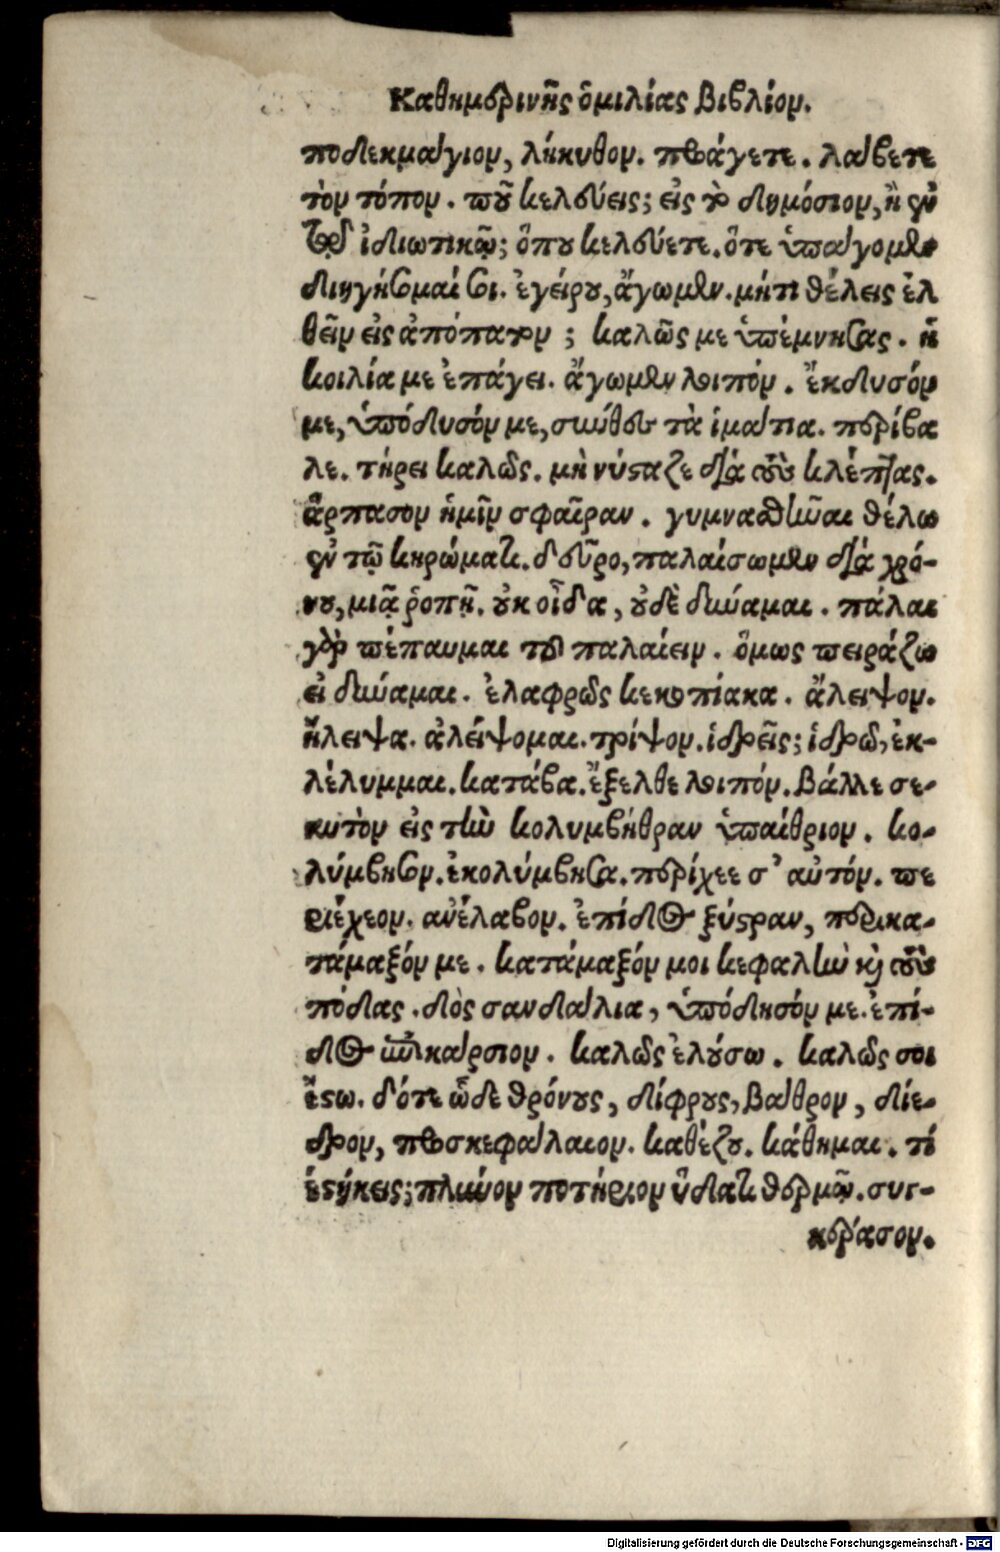 Καθημερινῆς ὁμιλίας βιβλίον.
ποδεκμάγιον, λήκυθον. προάγετε. λάβετε
τὸν τόπον. ποῦ κελεύεις; εἰς τὸ δημόσιον, ἢ ἐν
τῷ ἰδιωτικῷ; ὅπου κελεύετε. ὅτε ὑπάγομεν
διηγήσομαί σοι. ἐγείρου, ἄγωμεν. μήτι θέλεις ἐλ
θεῖν εἰς ἀπόπατον; καλῶς με ὑπέμνησας. ἡ
κοιλία με ἐπάγει. ἄγωμεν λοιπόν. ἔκδυσόν
με, ὑπόδυσόν με, σύνθες τὰ ἱμάτια. περίβα
λε. τήρει καλῶς. μὴ νύσταζε διὰ τοὺς κλέπτας.
ἅρπασον ἡμῖν σφαῖραν. γυμνασθῆναι θέλω
ἐν τῷ κηρώματι. δεῦρο, παλαίσωμεν διὰ χρό-
νου, μιᾷ ῥοπῇ. οὐκ οἶδα, οὐδὲ δύναμαι. πάλαι
γὰρ πέπαυμαι τοῦ παλαίειν. ὅμως πειράζω
εἰ δύναμαι. ἐλαφρῶς κεκοπίακα. ἄλειψον.
ἤλειψα. ἀλείψομαι. τρίψον. ἱδρεῖς; ἱδρῶ, ἐκ-
λέλυμμαι. κατάβα. ἔξελθε λοιπόν. βάλλε σε-
αυτὸν εἰς τὴν κολυμβήθραν ὑπαίθριον. κο-
λύμβησον. ἐκολύμβησα. περίχεε σ' αὐτόν. πε
ριέχεον. ἀνέλαβον. ἐπίδος ξύστραν, περικα-
τάμαξόν με. κατάμαξόν μοι κεφαλὴν καὶ τοὺς
πόδας. δὸς σανδάλια, ὑπόδησόν με. ἐπί-
δος ἐπικάρσιον. καλῶς ἐλούσω. καλῶς σοι
ἔστω. δότε ὧδε θρόνους, δίφρους, βάθρον, δίε-
δρον, προσκεφάλαιον. καθέζου. κάθημαι. τί
ἑστήκεις; πλῦνον ποτήριον ὕδατι θερμῷ. συγ-
κέρασον.
Digitalisierung gefördert durch die Deutsche Forschungsgemeinschaft - DFG